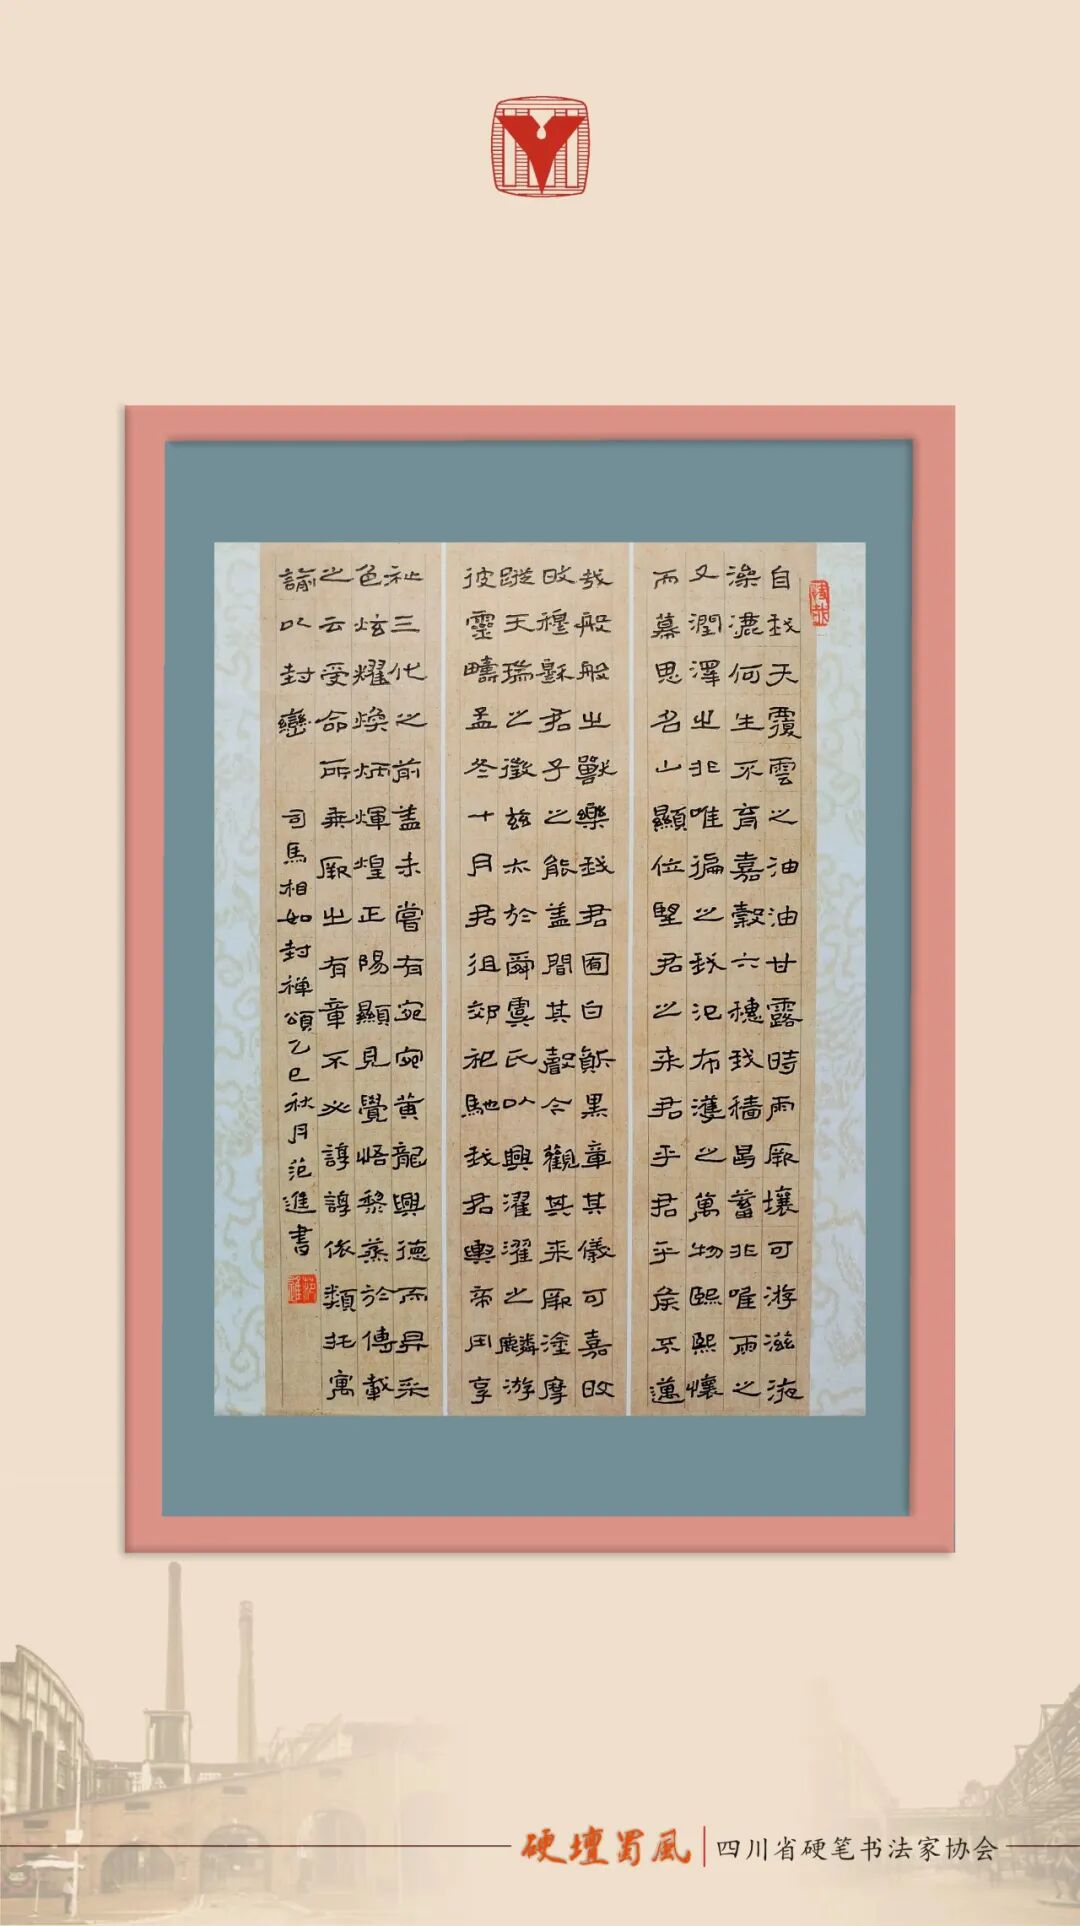 自我天覆雲之油油甘露時雨厥壤可游滋液
滲漉何生不育嘉穀六穗我穡曷蓄非唯雨之
又潤澤之非唯徧之我氾布濩之萬物熙熙懷
而慕思名山顯位望君之來君乎君乎侯不邁
哉般般之獸樂我君囿白質黑章其儀可嘉旼
旼穆穆君子之能蓋聞其聲今觀其來厥塗靡
蹤天瑞之徵茲亦於舜虞氏以興濯濯之麟游
彼靈疇孟冬十月君徂郊祀馳我君輿帝用享
祉三代之前蓋未嘗有宛宛黃龍興德而昇采
色炫耀煥炳煇煌正陽顯見覺悟黎蒸於傳載
之云受命所乘厥之有章不必諄諄依類托寓
諭以封巒 司馬相如封禅頌乙巳秋月范進書
范進
硬壇蜀風 四川省硬笔书法家协会